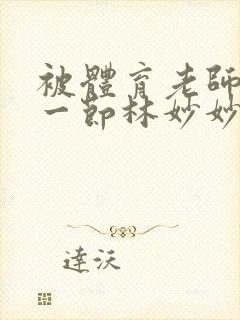 被體育老師
一節林妙妙
達沃